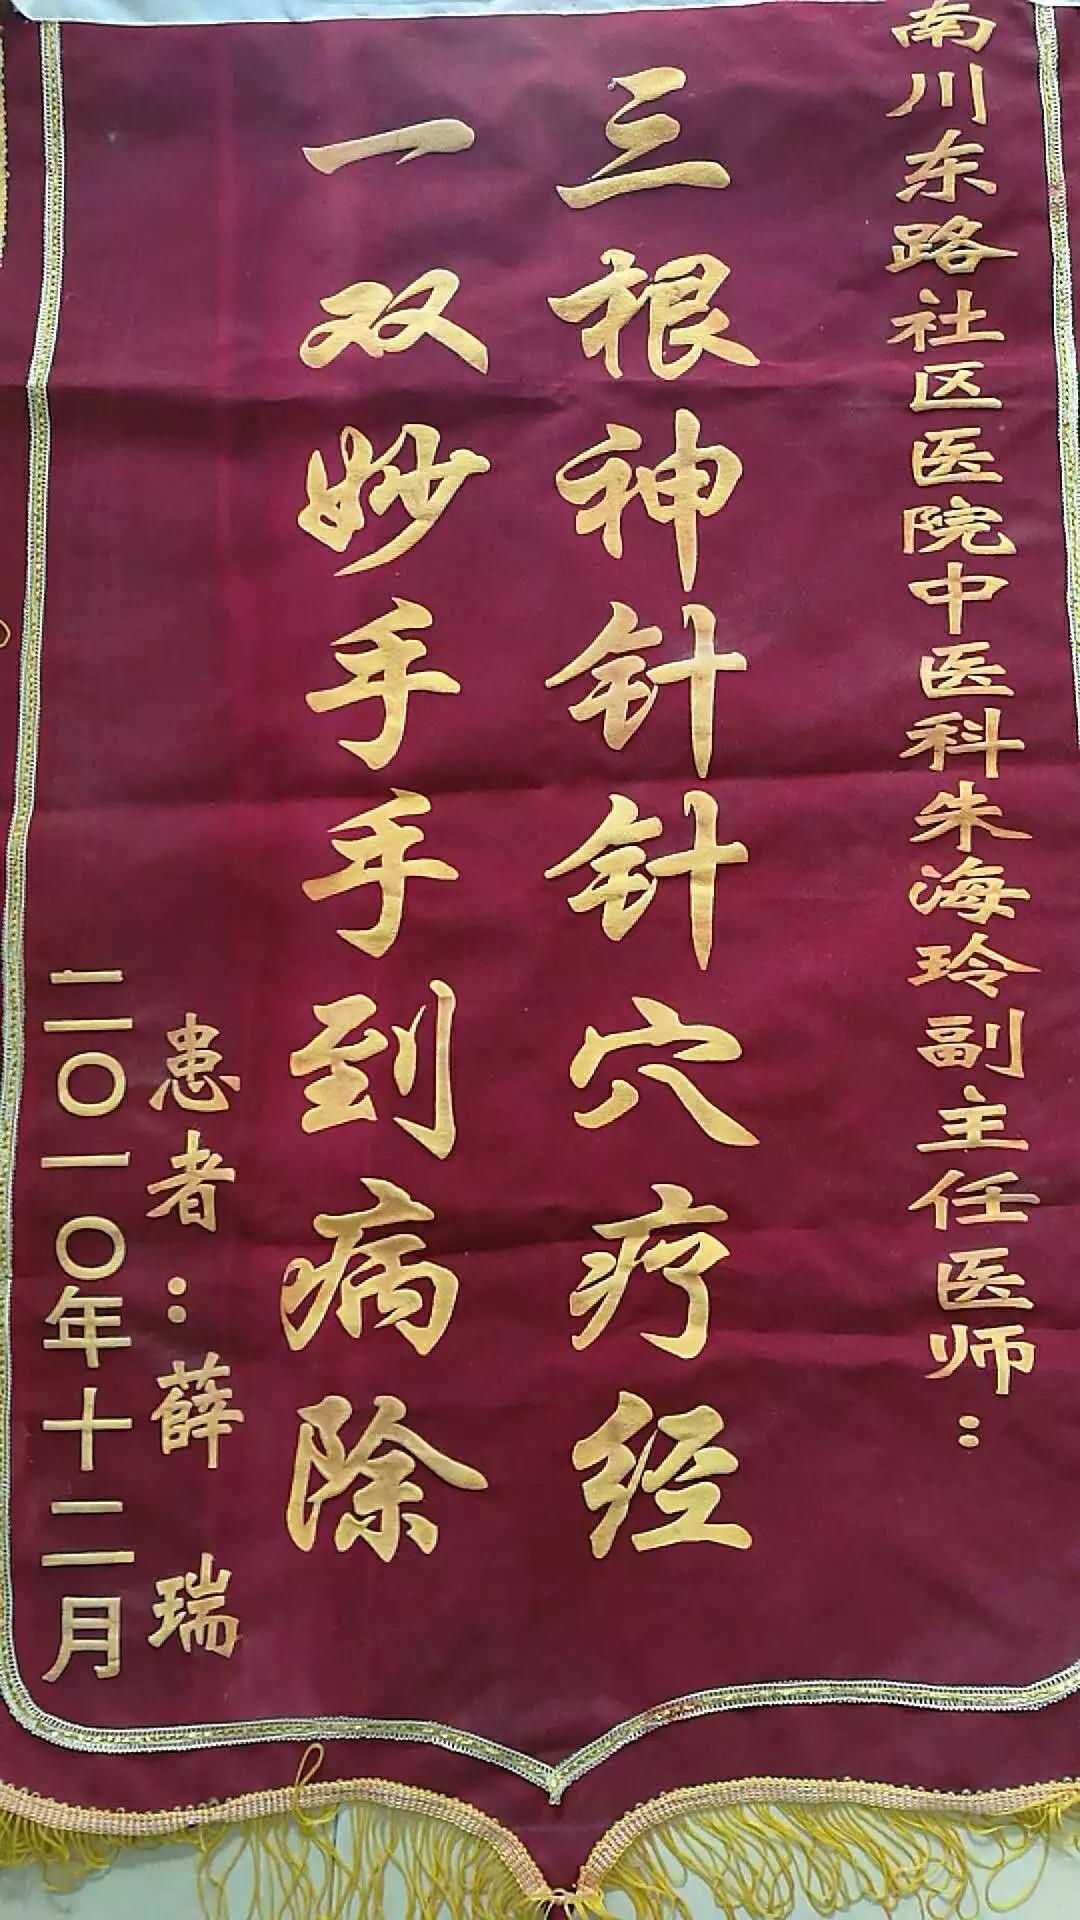 南川东路社区医院中医科朱海玲副主任医师：
三根神针针穴疗经
一双妙手手到病除
患者：薛瑞
二〇一〇年十二月